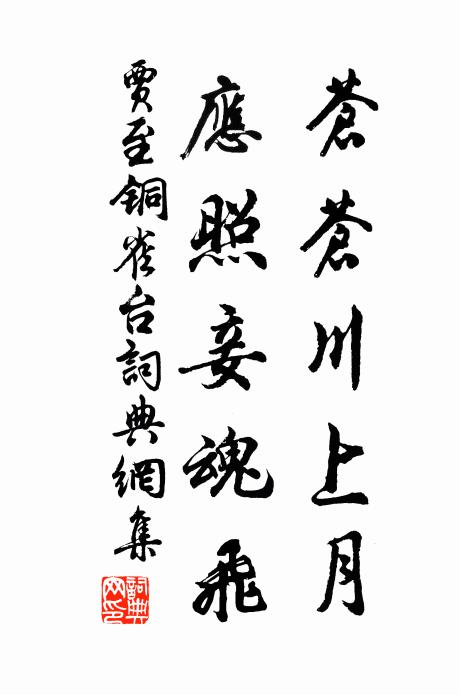 蒼蒼川上月
應照妾魂飛
賈至銅雀台詞典網集
詞典網印